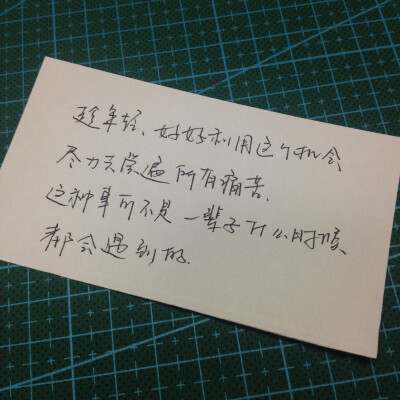 趁年轻、好好利用这个机会
尽力去尝遍所有痛苦、
这种事可不是一辈子什么时候、
都会遇到的.